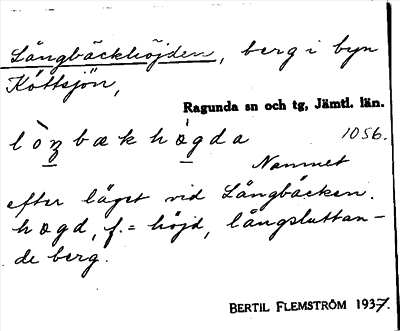 Långbäckhöjden, berg i byn
Köttsjön,
Ragunda sn och tg, Jämtl. län.
lòŋbækhøgda 1056.
Namnet
efter läget vid Långbäcken.
høgd, f. = höjd, långsluttan-
de berg.
BERTIL FLEMSTRÖM 1937.